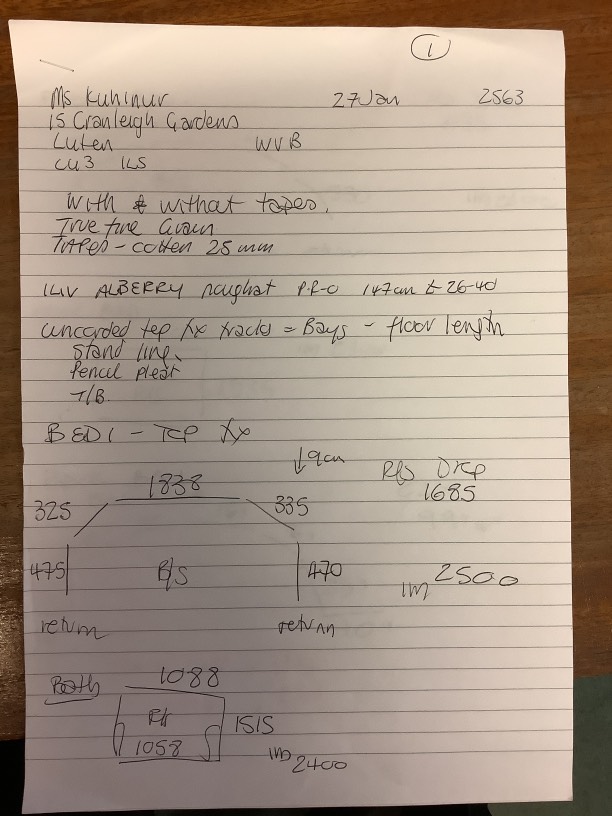 1
Ms Kuhinur 27 Jan 2563
15 Cranleigh Gardens
Luton WVB
LU3 1LS
With & without tapes.
True fine Grain
TAPES - cotten 25 mm
ALBERRY noughat 147cm £26-40
uncorded top fx tracks = Bays - floor length
Stand line
Pencil pleat
T/B.
BED1 - TOP fx
↓9cm
1838 R/s Drop
325 335 1685
475 B/S 470 2500
return return
Both 1088
1515
1058 2400